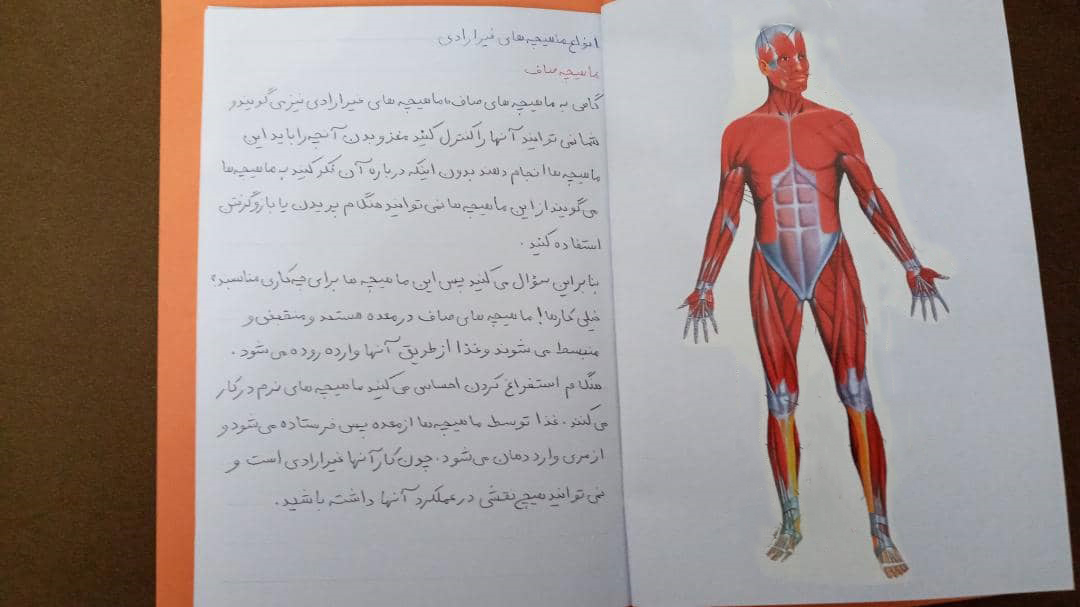 انواع ماهیچه های غیرارادی
ماهیچه صاف
گاهی به ماهیچه های صاف، ماهیچه های غیرارادی نیز می گویند و
شما نمی توانید آنها را کنترل کنید مغز و بدن آنچه را باید این
ماهیچه ها انجام دهند بدون اینکه درباره آن فکر کنید به ماهیچه ها
می گویند از این ماهیچه ها نمی توانید هنگام پریدن یا بازو گرفتن
استفاده کنید .
بنابراین سؤال می کنید پس این ماهیچه ها برای چه کاری مناسبند؟
خیلی کارها! ماهیچه های صاف در معده هستند و منقبض و
منبسط می شوند و غذا از طریق آنها وارده روده می شود .
هنگام استفراغ کردن احساس می کنید ماهیچه های نرم در کار
می کنند . غذا توسط ماهیچه ها از معده پس فرستاده می شود و
از مری وارد دهان می شود . چون کار آنها غیرارادی است و
نمی توانید هیچ نقشی در عملکرد آنها داشته باشید .